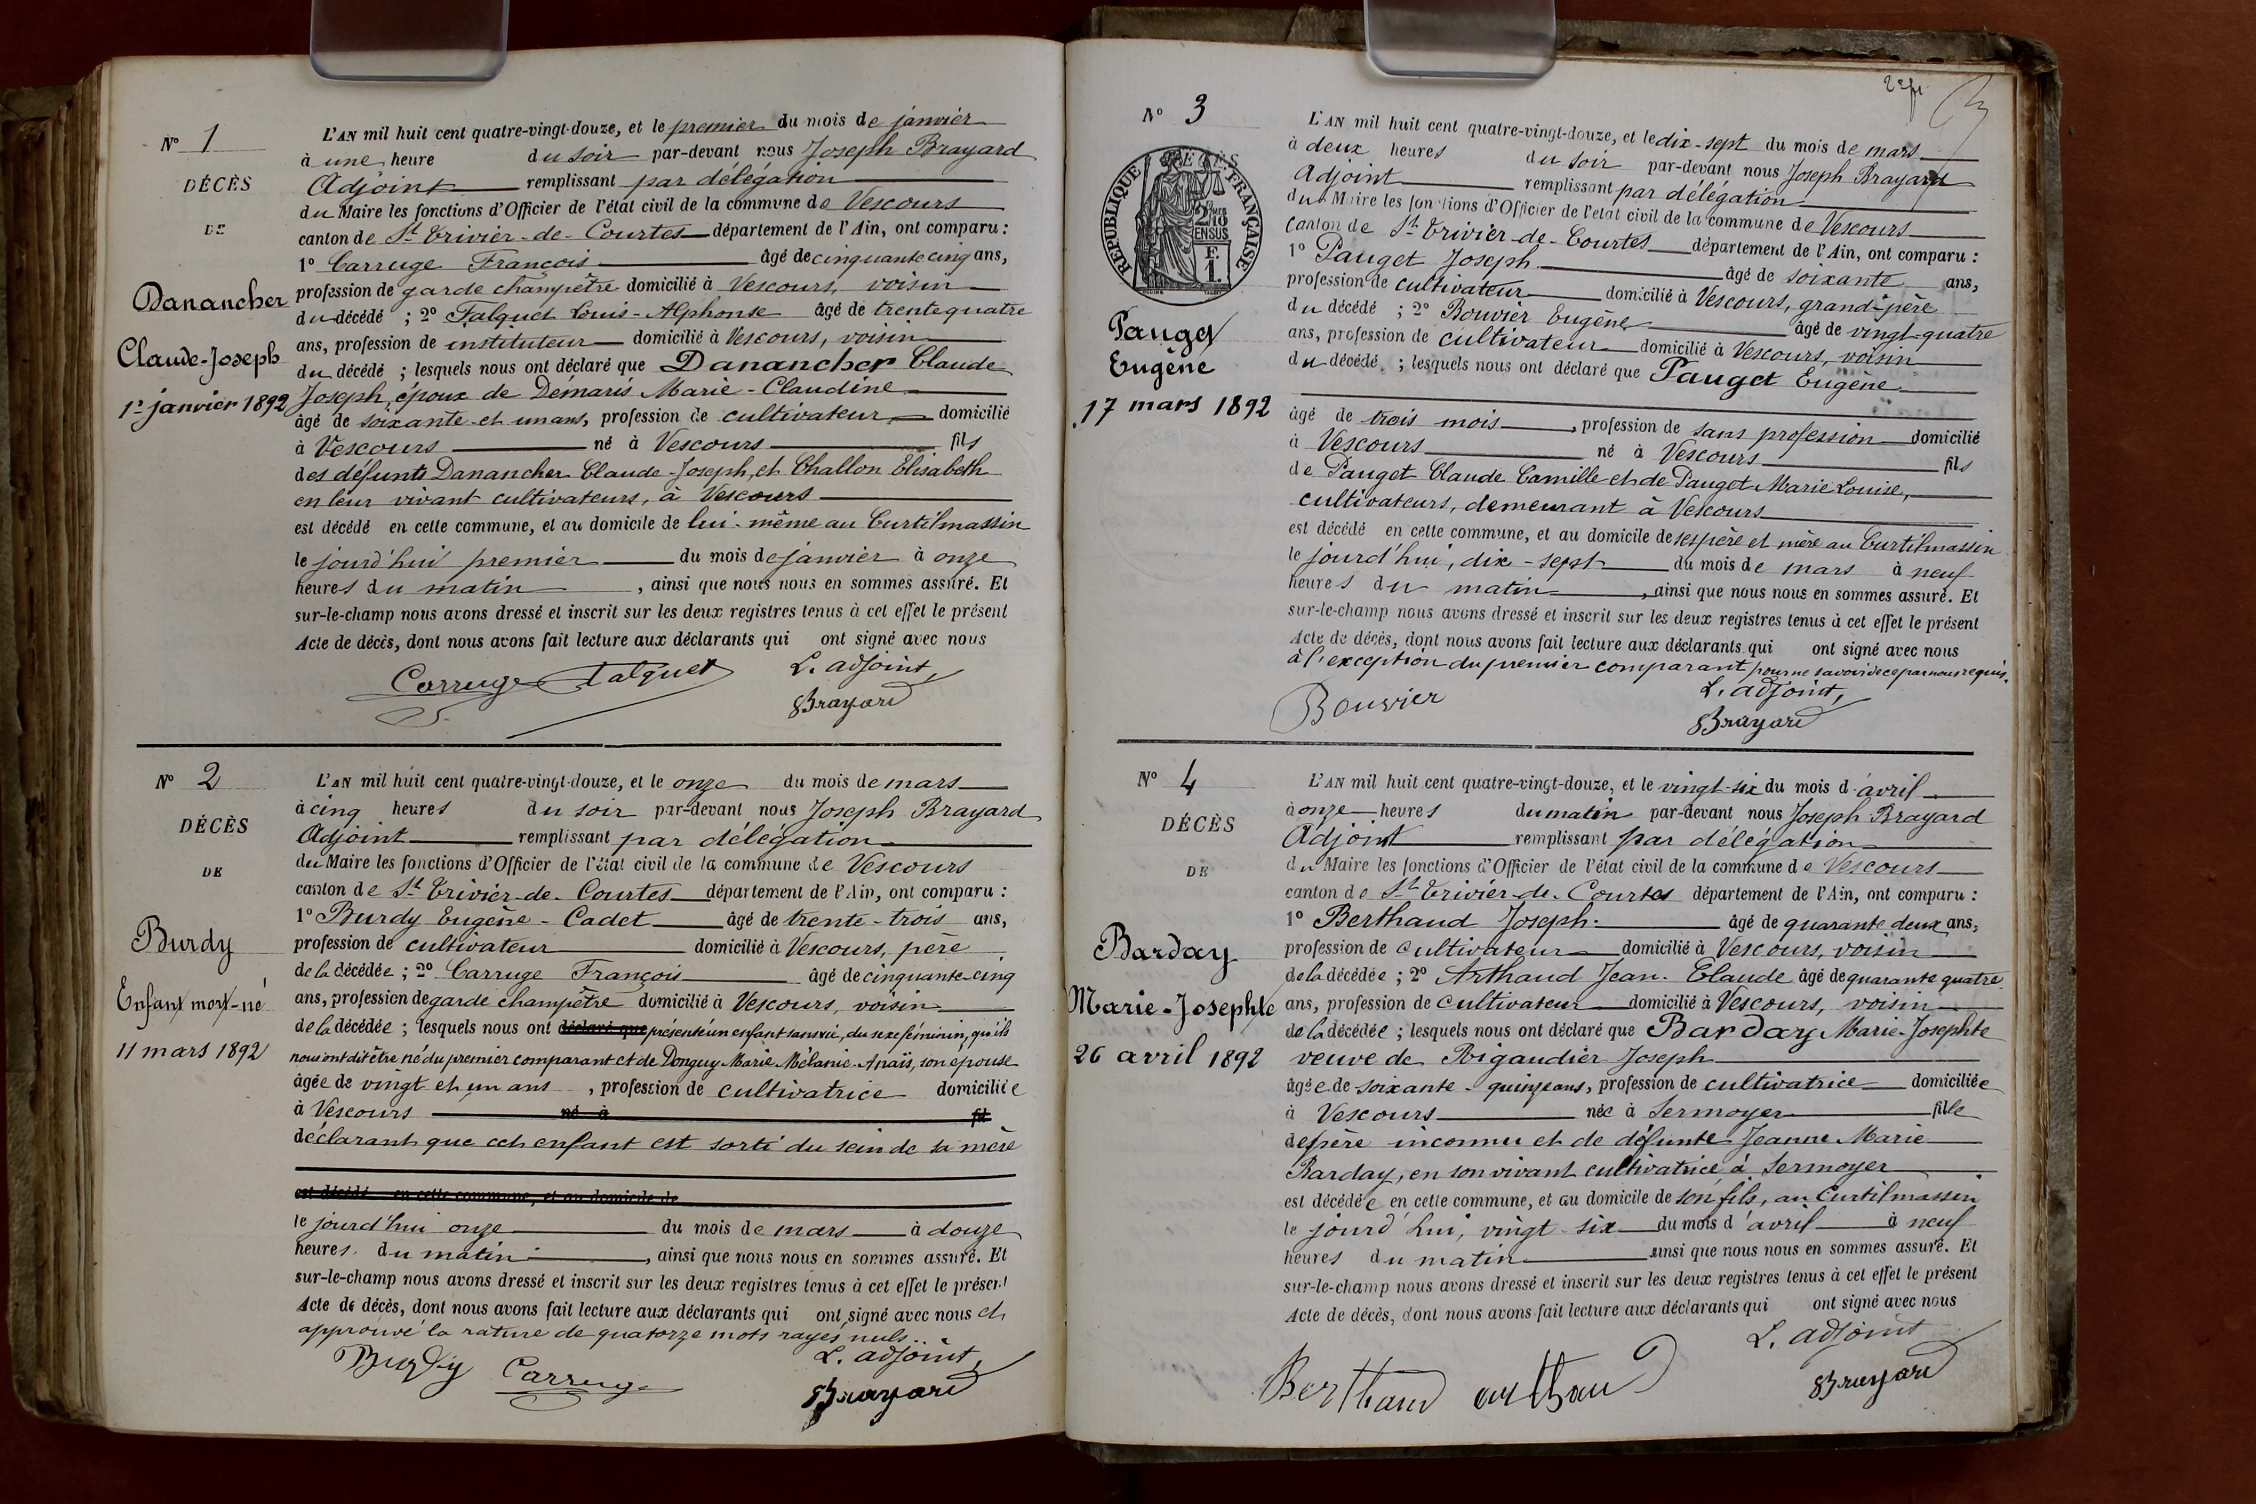 N° 1
DÉCÈS
DE
Danancher
Claude-Joseph
1er janvier 1892
L'AN mil huit cent quatre-vingt-douze, et le premier du mois de janvier
à une heure du soir par-devant nous Joseph Brayard
Adjoint remplissant par délégation
du Maire les fonctions d'Officier de l'état civil de la commune de Vescours
canton de St Trivier-de-Courtes département de l'Ain, ont comparu :
1° Carruge François âgé de cinquante cinq ans,
profession de garde champêtre domicilié à Vescours, voisin
du décédé ; 2° Falquet Louis-Alphonse âgé de trente quatre
ans, profession de instituteur domicilié à Vescours, voisin
du décédé ; lesquels nous ont déclaré que Danancher Claude
Joseph, époux de Démaris Marie-Claudine
âgé de soixante et un ans, profession de cultivateur domicilié
à Vescours né à Vescours fils
des défunts Danancher Claude-Joseph, et Challon Elisabeth
en leur vivant cultivateurs, à Vescours
est décédé en cette commune, et au domicile de lui-même au Curtilmassin
le jourd'hui premier du mois de janvier à onze
heures du matin, ainsi que nous nous en sommes assuré. Et
sur-le-champ nous avons dressé et inscrit sur les deux registres tenus à cet effet le présent
Acte de décès, dont nous avons fait lecture aux déclarants qui ont signé avec nous
Carruge Falquet L. adjoint,
Brayard
N° 2
DÉCÈS
DE
Burdy
Enfant mort-né
11 mars 1892
L'AN mil huit cent quatre-vingt-douze, et le onze du mois de mars
à cinq heures du soir par-devant nous Joseph Brayard
Adjoint remplissant par délégation
du Maire les fonctions d'Officier de l'état civil de la commune de Vescours
canton de St Trivier-de-Courtes département de l'Ain, ont comparu :
1° Burdy Eugène-Cadet âgé de trente-trois ans,
profession de cultivateur domicilié à Vescours, père
de la décédée ; 2° Carruge François âgé de cinquante-cinq
ans, profession de garde champêtre domicilié à Vescours, voisin
de la décédée ; lesquels nous ont déclaré que présenté un enfant sans vie, du sexe féminin, qu'ils
nous ont dit être né du premier comparant et de Donguy Marie Mélanie Anaïs, son épouse
âgée de vingt et un ans, profession de cultivatrice domiciliée
à Vescours né à fil
déclarant que cet enfant est sorti du sein de sa mère
est décédé en cette commune, et au domicile de
le jourd'hui onze du mois de mars à douze
heures du matin, ainsi que nous nous en sommes assuré. Et
sur-le-champ nous avons dressé et inscrit sur les deux registres tenus à cet effet le présent
Acte de décès, dont nous avons fait lecture aux déclarants qui ont signé avec nous et
approuvé la rature de quatorze mots rayés nuls.
Burdy Carruge L. adjoint,
Brayard
N° 3
RÉPUBLIQUE FRANÇAISE
Pauget
Eugène
17 mars 1892
L'AN mil huit cent quatre-vingt-douze, et le dix-sept du mois de mars
à deux heures du soir par-devant nous Joseph Brayard
Adjoint remplissant par délégation
du Maire les fonctions d'Officier de l'état civil de la commune de Vescours
canton de St Trivier-de-Courtes département de l'Ain, ont comparu :
1° Pauget Joseph âgé de soixante ans,
profession de cultivateur domicilié à Vescours, grand-père
du décédé ; 2° Bouvier Eugène âgé de vingt-quatre
ans, profession de cultivateur domicilié à Vescours, voisin
du décédé ; lesquels nous ont déclaré que Pauget Eugène
âgé de trois mois, profession de sans profession domicilié
à Vescours né à Vescours fils
de Pauget Claude Camille et de Pauget Marie Louise,
cultivateurs, demeurant à Vescours
est décédé en cette commune, et au domicile de ses père et mère au Curtilmassin
le jourd'hui, dix-sept du mois de mars à neuf
heures du matin, ainsi que nous nous en sommes assuré. Et
sur-le-champ nous avons dressé et inscrit sur les deux registres tenus à cet effet le présent
Acte de décès, dont nous avons fait lecture aux déclarants qui ont signé avec nous
à l'exception du premier comparant pour ne savoir de ce par nous requis.
Bouvier L. adjoint,
Brayard
N° 4
DÉCÈS
DE
Barday
Marie-Josephte
26 avril 1892
L'AN mil huit cent quatre-vingt-douze, et le vingt-six du mois d'avril
à onze heures du matin par-devant nous Joseph Brayard
Adjoint remplissant par délégation
du Maire les fonctions d'Officier de l'état civil de la commune de Vescours
canton de St Trivier-de-Courtes département de l'Ain, ont comparu :
1° Berthaud Joseph âgé de quarante deux ans,
profession de cultivateur domicilié à Vescours, voisin
de la décédée ; 2° Arthaud Jean-Claude âgé de quarante quatre
ans, profession de cultivateur domicilié à Vescours, voisin
de la décédée ; lesquels nous ont déclaré que Barday Marie-Josephte
veuve de Rigaudier Joseph
âgée de soixante-quinze ans, profession de cultivatrice domiciliée
à Vescours née à Sermoyer fille
de père inconnu et de défunte Jeanne Marie
Barday, en son vivant cultivatrice à Sermoyer
est décédée en cette commune, et au domicile de son fils, au Curtilmassin
le jourd'hui, vingt-six du mois d'avril à neuf
heures du matin ainsi que nous nous en sommes assuré. Et
sur-le-champ nous avons dressé et inscrit sur les deux registres tenus à cet effet le présent
Acte de décès, dont nous avons fait lecture aux déclarants qui ont signé avec nous
Berthaud arthaud L. adjoint
Brayard